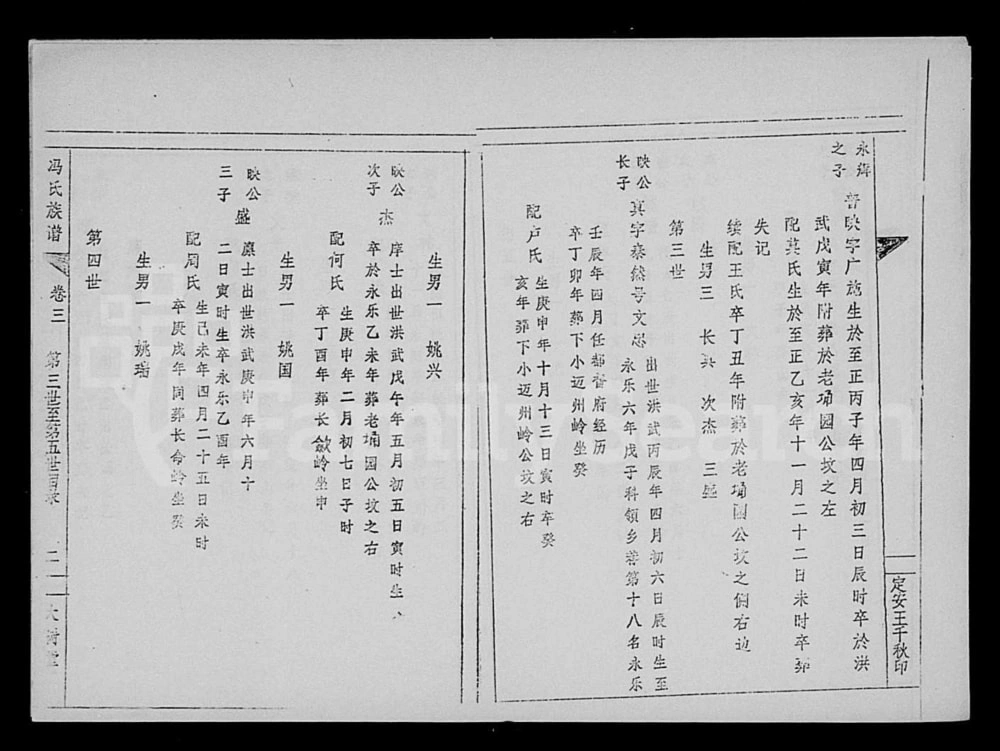 定安王千秋印
永𬏟
之子
普映字广施生於至正丙子年四月初三日辰时卒於洪
武戊寅年附葬於老埇园公坟之左
配莫氏生於至正乙亥年十一月二十二日未时卒葬
失记
续配王氏卒丁丑年附葬於老埇园公坟之侧右边
生男三 长真 次杰 三盛
第三世
映公
长子
真字泰然号文忠 出世洪武丙辰年四月初六日辰时生至
永乐六年戊子科领乡荐第十八名永乐
壬辰年四月任都督府经历
卒丁卯年葬下小迈州岭坐癸
配卢氏 生庚申年十月十三日寅时卒癸
亥年葬下小迈州岭公坟之右
生男一 姚兴
映公
次子
杰 庠士出世洪武戊午年五月初五日寅时生
卒於永乐乙未年葬老埇园公坟之右
配何氏 生庚申年二月初七日子时
卒丁酉年葬长敛岭坐申
生男一 姚国
映公
三子
盛 廪士出世洪武庚申年六月十
二日寅时生卒永乐乙酉年
配周氏 生己未年四月二十五日未时
卒庚戌年同葬长命岭坐癸
生男一 姚瑞
第四世
冯氏族谱 卷三 第三世至第五世目录 二 大树堂
FamilySearch